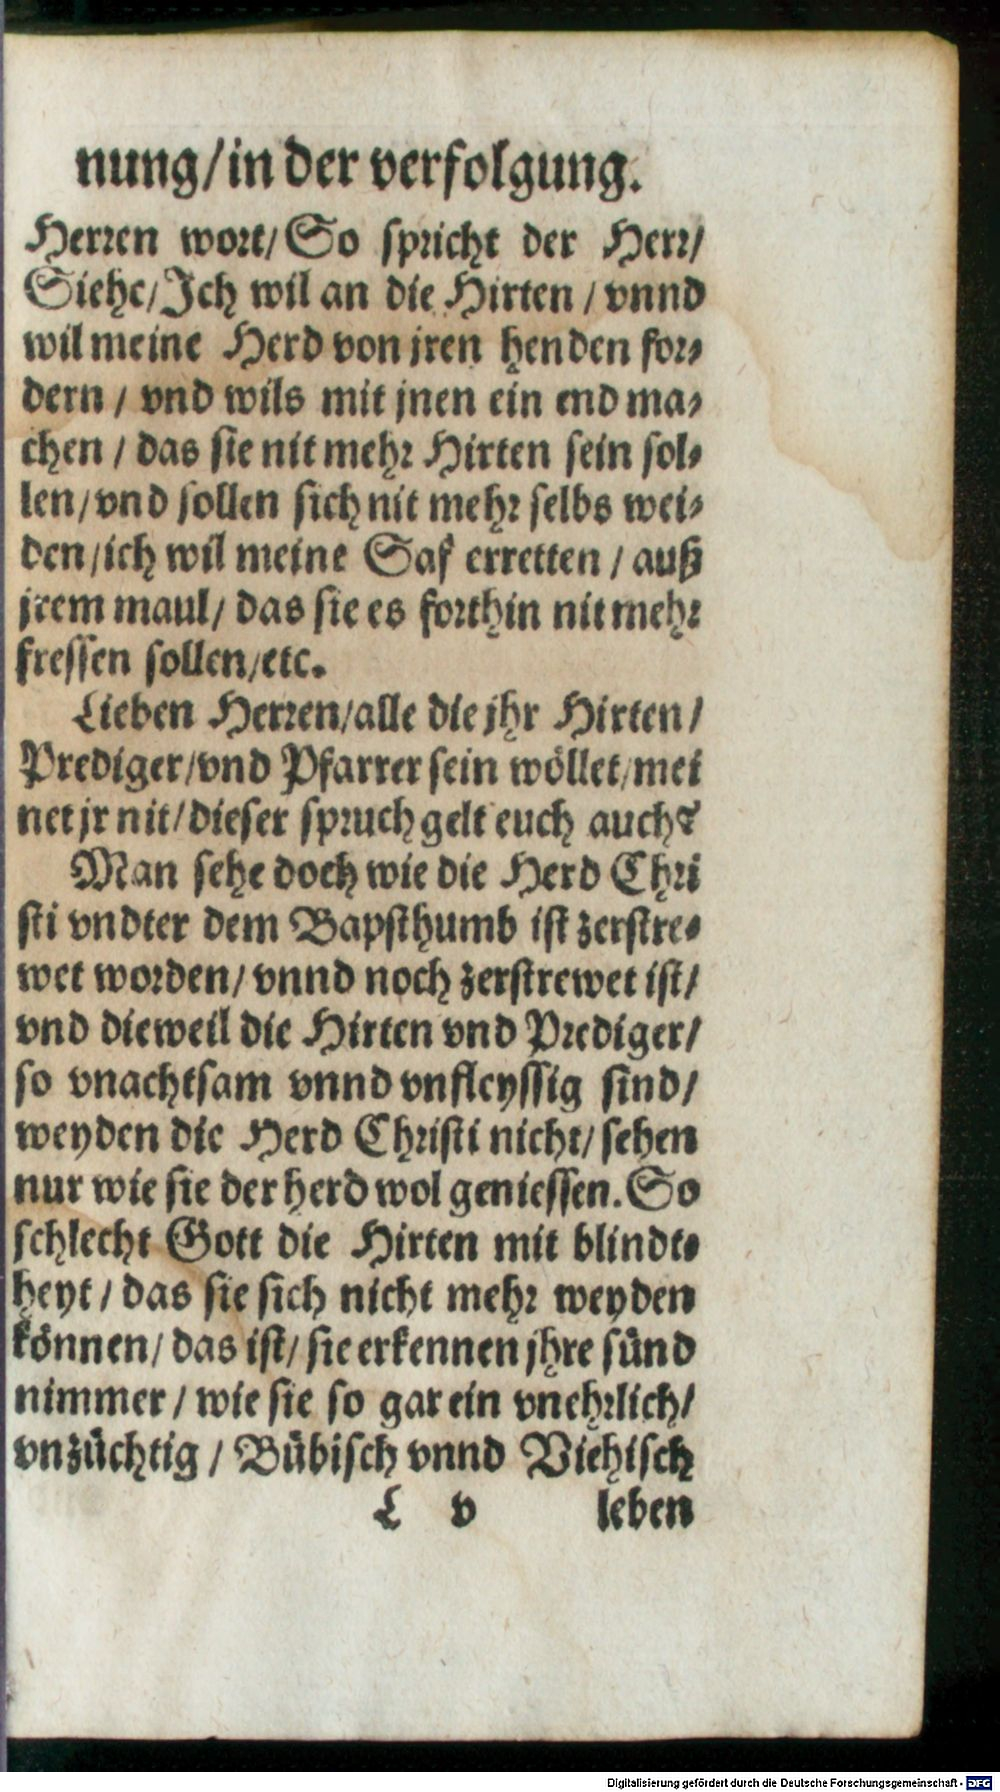 nung/in der verfolgung.
Herren wort/So spricht der Herr/
Siehe/Jch wil an die Hirten/vnnd
wil meine Herd von jren henden for-
dern/vnd wils mit jnen ein end ma-
chen/das sie nit mehr Hirten sein sol-
len/vnd sollen sich nit mehr selbs wei-
den/ich wil meine Saf erretten/auß
jrem maul/das sie es forthin nit mehr
fressen sollen/etc.
Lieben Herren/alle die jhr Hirten/
Prediger/vnd Pfarrer sein wöllet/mei
net jr nit/dieser spruch gelt euch auch?
Man sehe doch wie die Herd Chri
sti vndter dem Bapsthumb ist zerstre-
wet worden/vnnd noch zerstrewet ist/
vnd dieweil die Hirten vnd Prediger/
so vnachtsam vnnd vnfleyssig sind/
weyden die Herd Christi nicht/sehen
nur wie sie der herd wol geniessen. So
schlecht Gott die Hirten mit blindt-
heyt/das sie sich nicht mehr weyden
können/das ist/sie erkennen jhre sünd
nimmer/wie sie so gar ein vnehrlich/
vnzüchtig/Bübisch vnnd Viehisch
L v leben
Digitalisierung gefördert durch die Deutsche Forschungsgemeinschaft - DFG